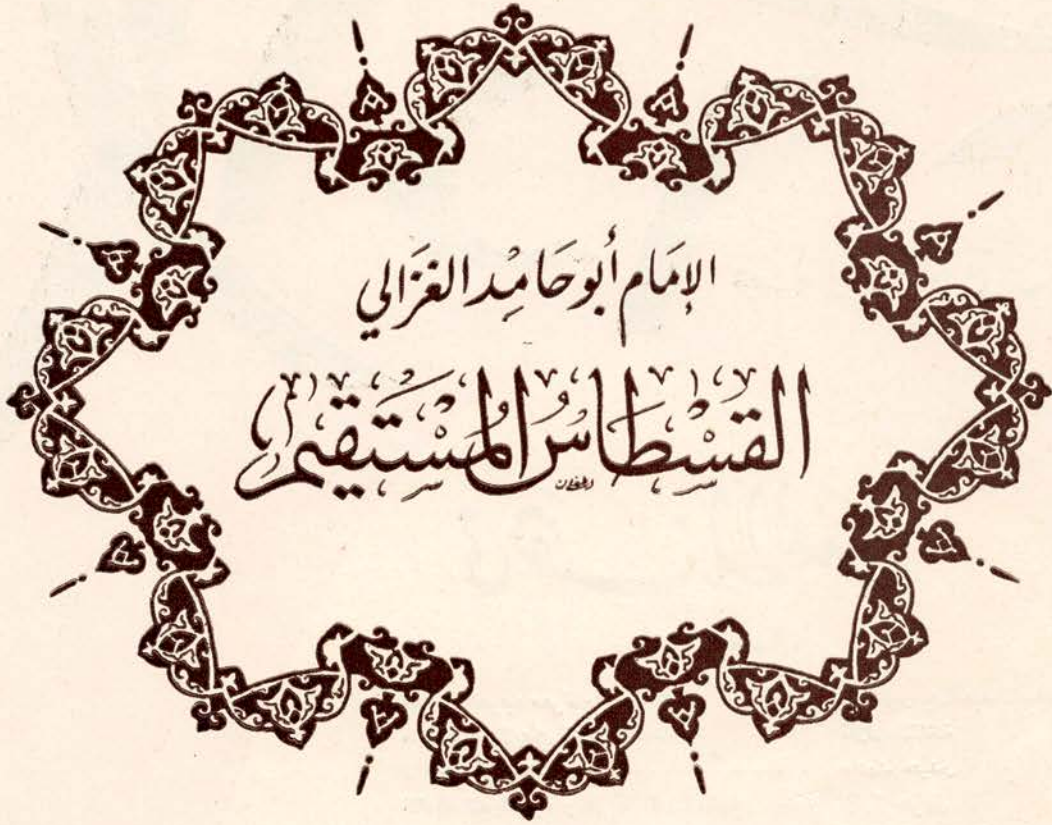 الإمَام أبُو حَامِد الغَزَالي
القِسْطَاسُ المُسْتَقِيم